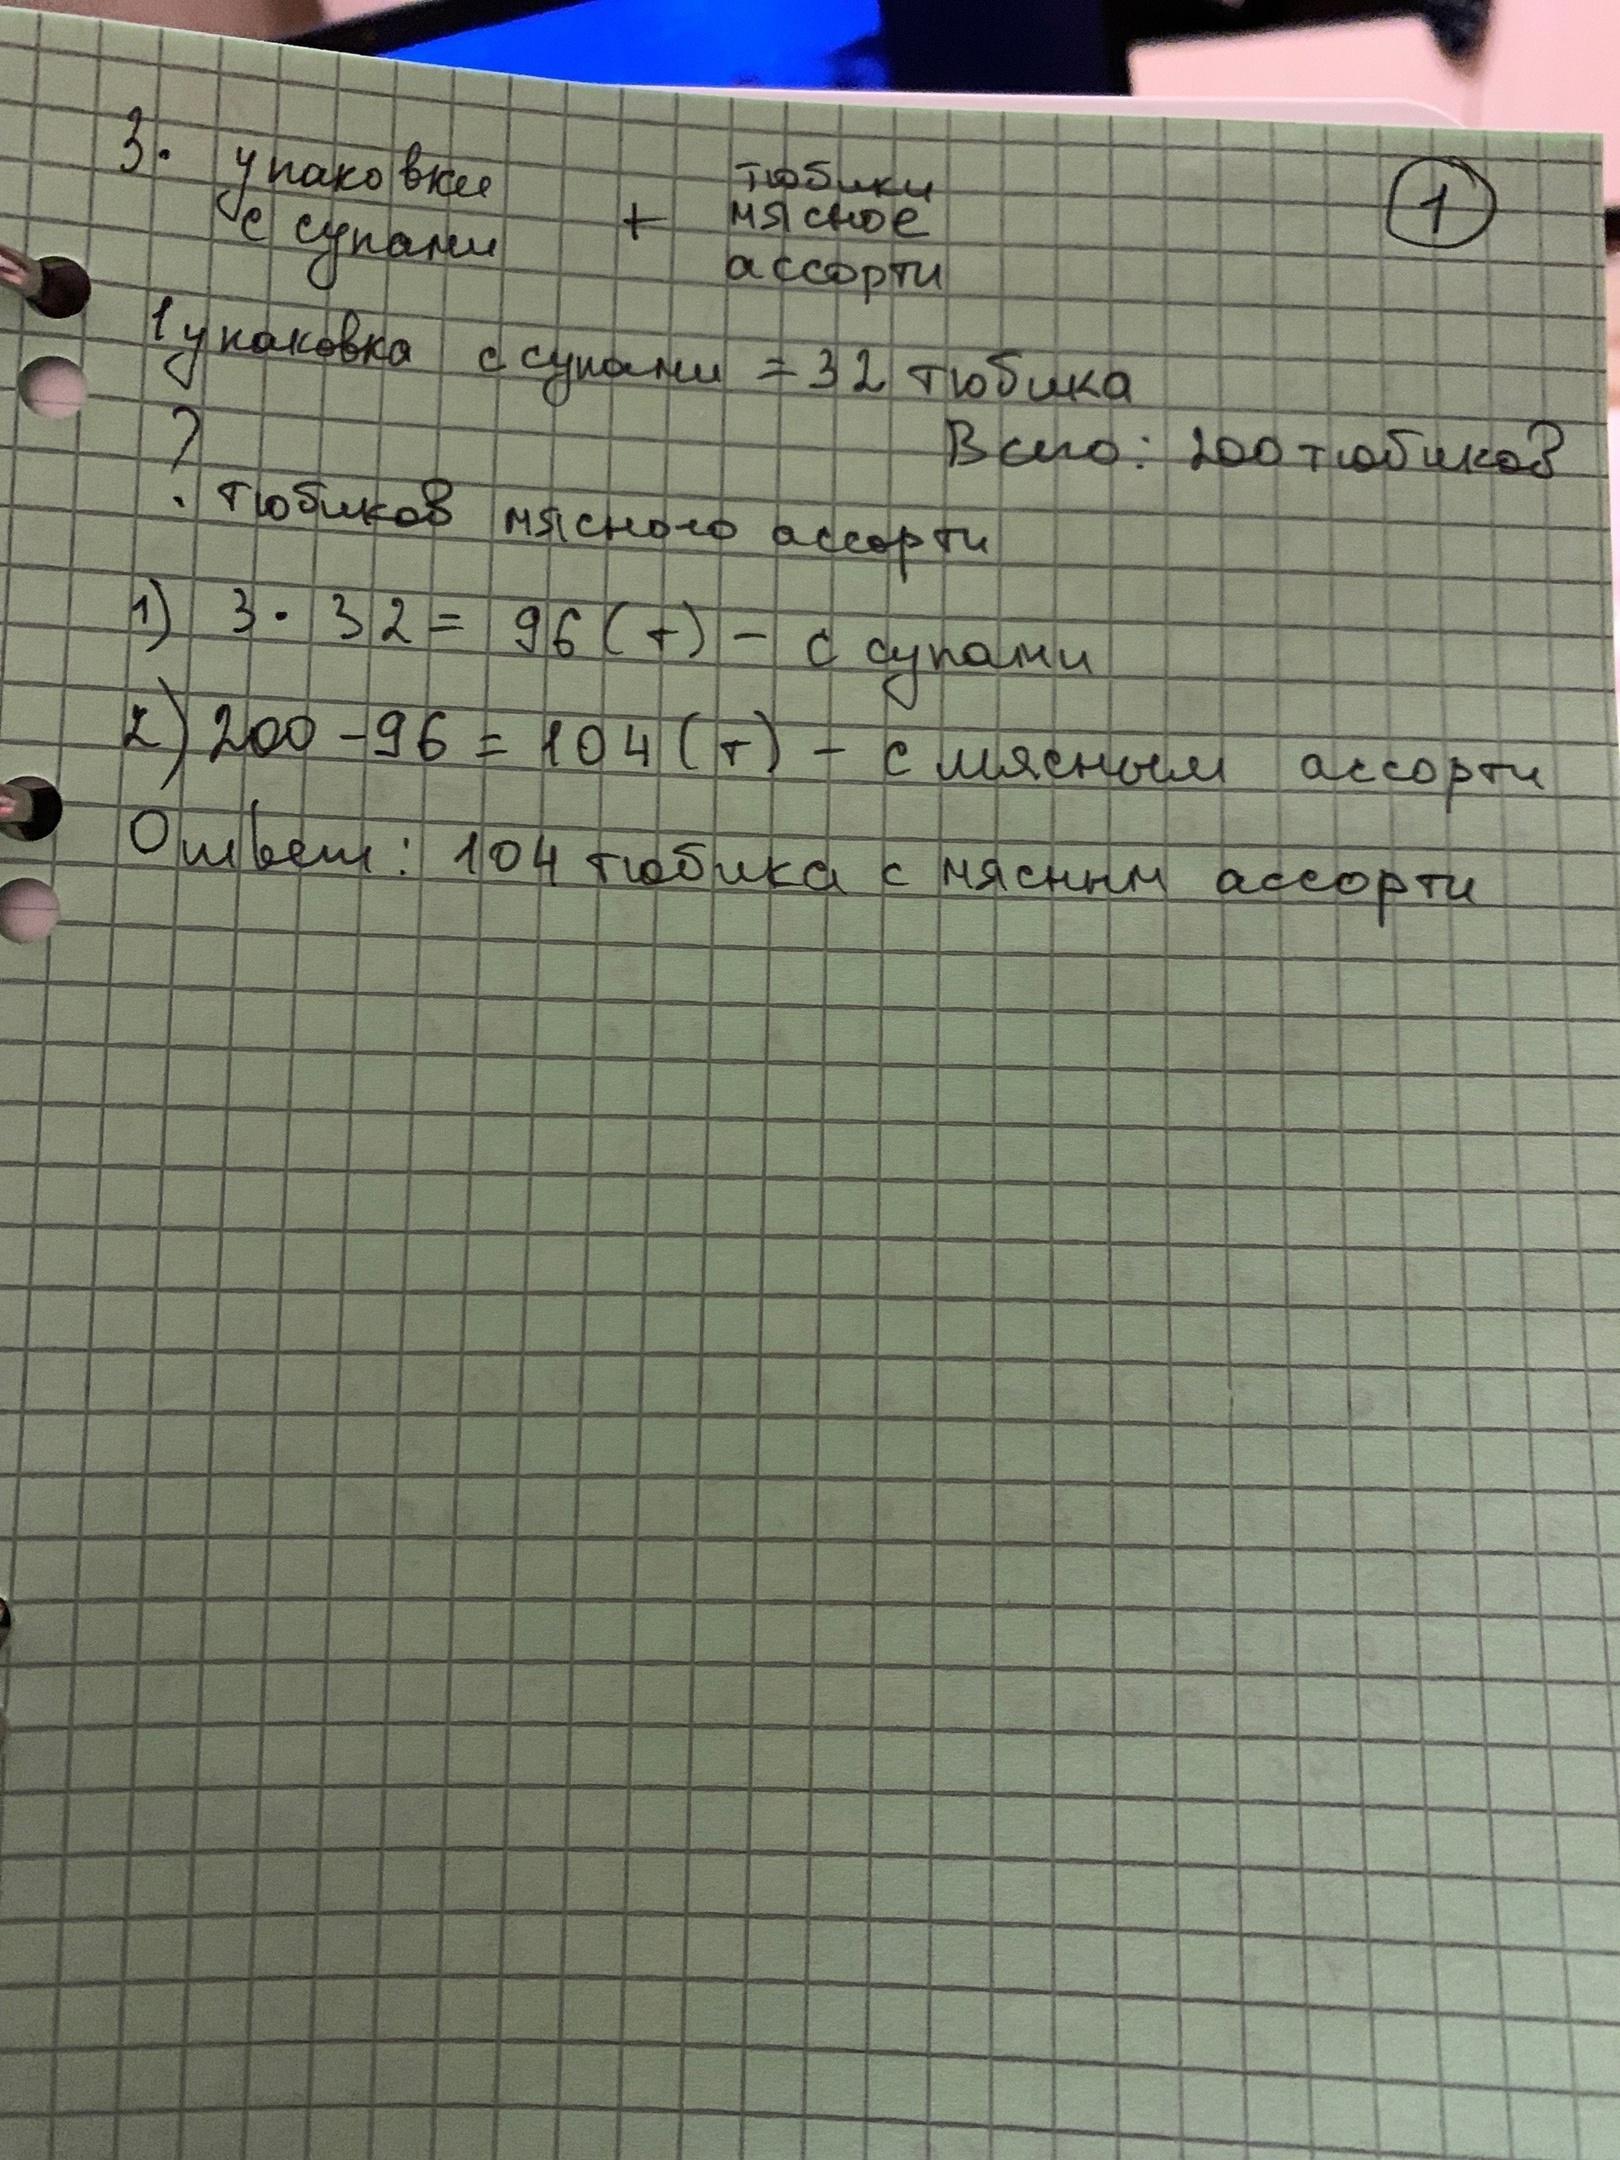 3. упаковки с супами + тюбики мясное ассорти
1
1 упаковка с супами = 32 тюбика
Всего: 200 тюбиков
? тюбиков мясного ассорти
1) 3 · 32 = 96 (т) – с супами
2) 200 – 96 = 104 (т) – с мясным ассорти
Ответ: 104 тюбика с мясным ассорти